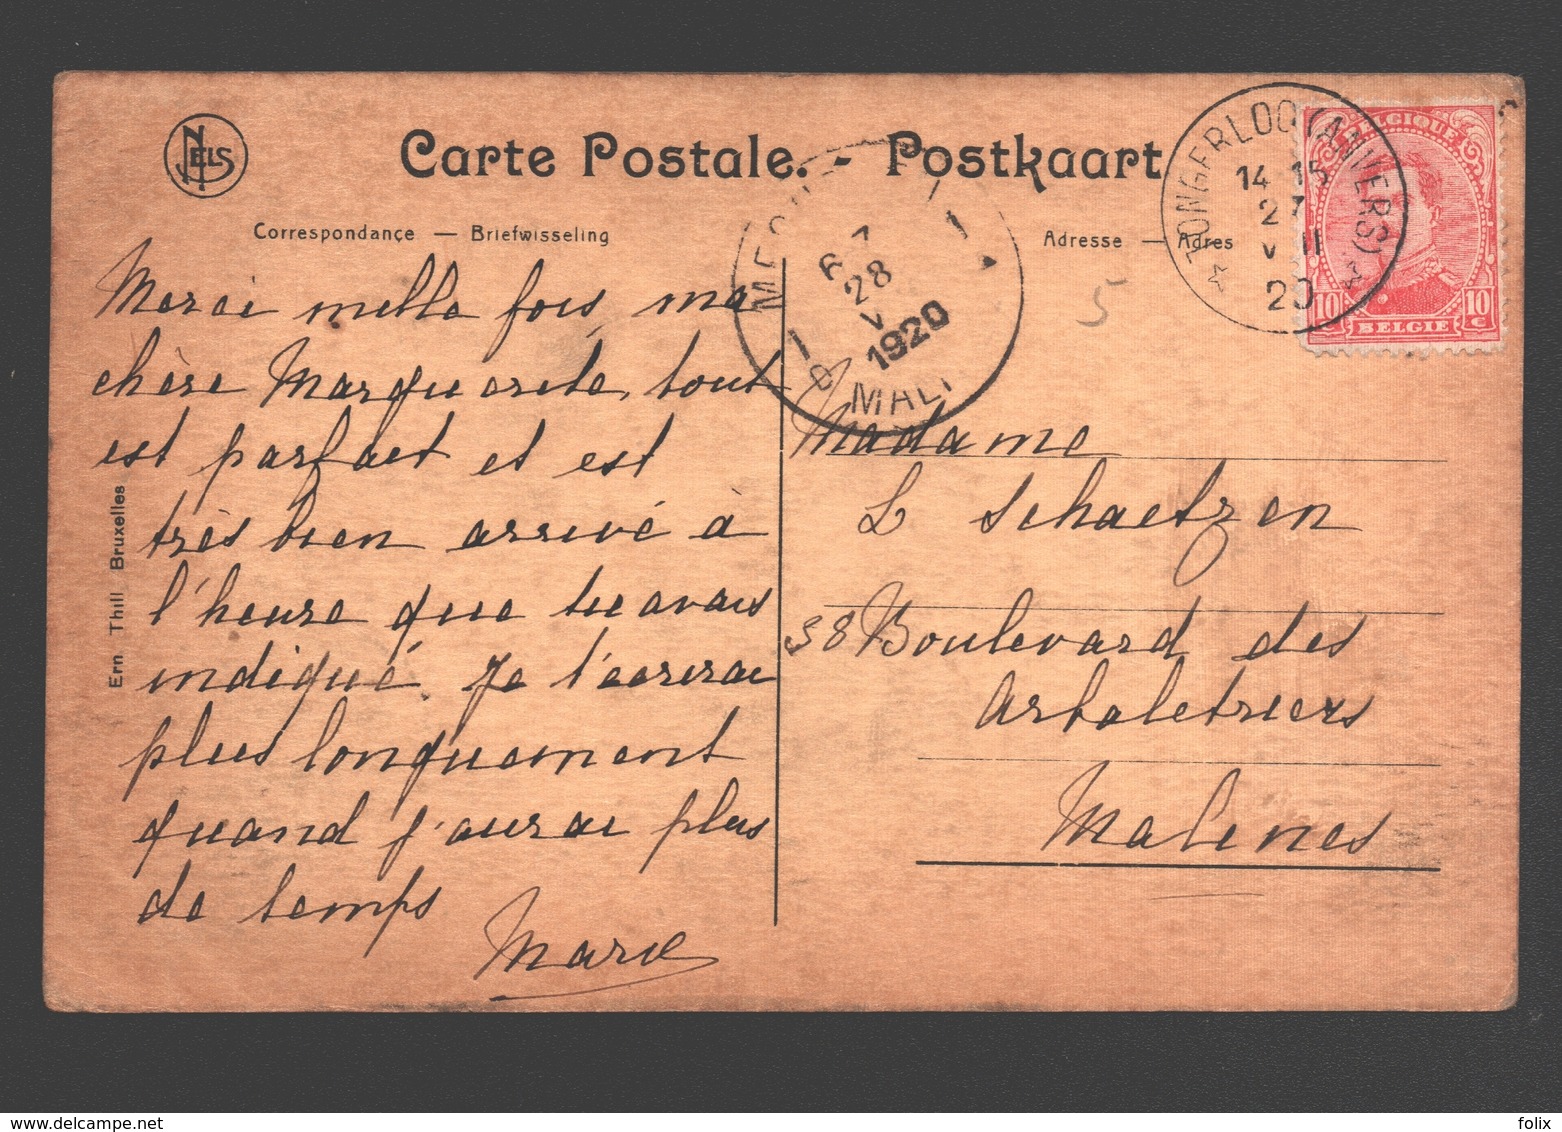 NELS
Carte Postale. - Postkaart
Correspondance — Briefwisseling
Adresse — Adres
TONGERLOO (ANVERS)
14 15
27
V II
20
BELGIQUE
10 c
BELGIE
10 c
28
V
1920
MALI
5
Merci mille fois ma
chère Marguerite, tout
est parfait et est
très bien arrivé à
l'heure que tu avais
indiqué. Je t'écrirai
plus longuement
quand j'aurai plus
de temps
Marie
Madame
L Schaetzen
38 Boulevard des
Arbaletriers
Malines
Ern Thill Bruxelles
folix